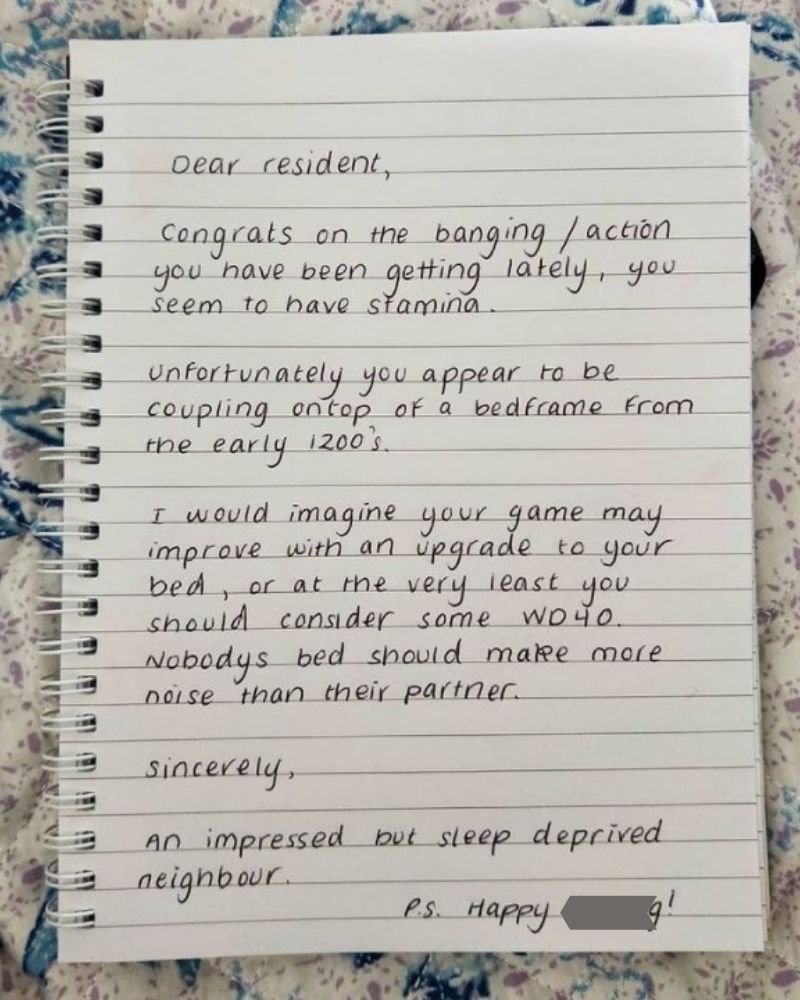 Dear resident,
Congrats on the banging / action
you have been getting lately, you
seem to have stamina.
Unfortunately you appear to be
coupling ontop of a bedframe from
the early 1200's.
I would imagine your game may
improve with an upgrade to your
bed, or at the very least you
should consider some WD40.
Nobodys bed should make more
noise than their partner.
Sincerely,
An impressed but sleep deprived
neighbour.
P.S. Happy g!